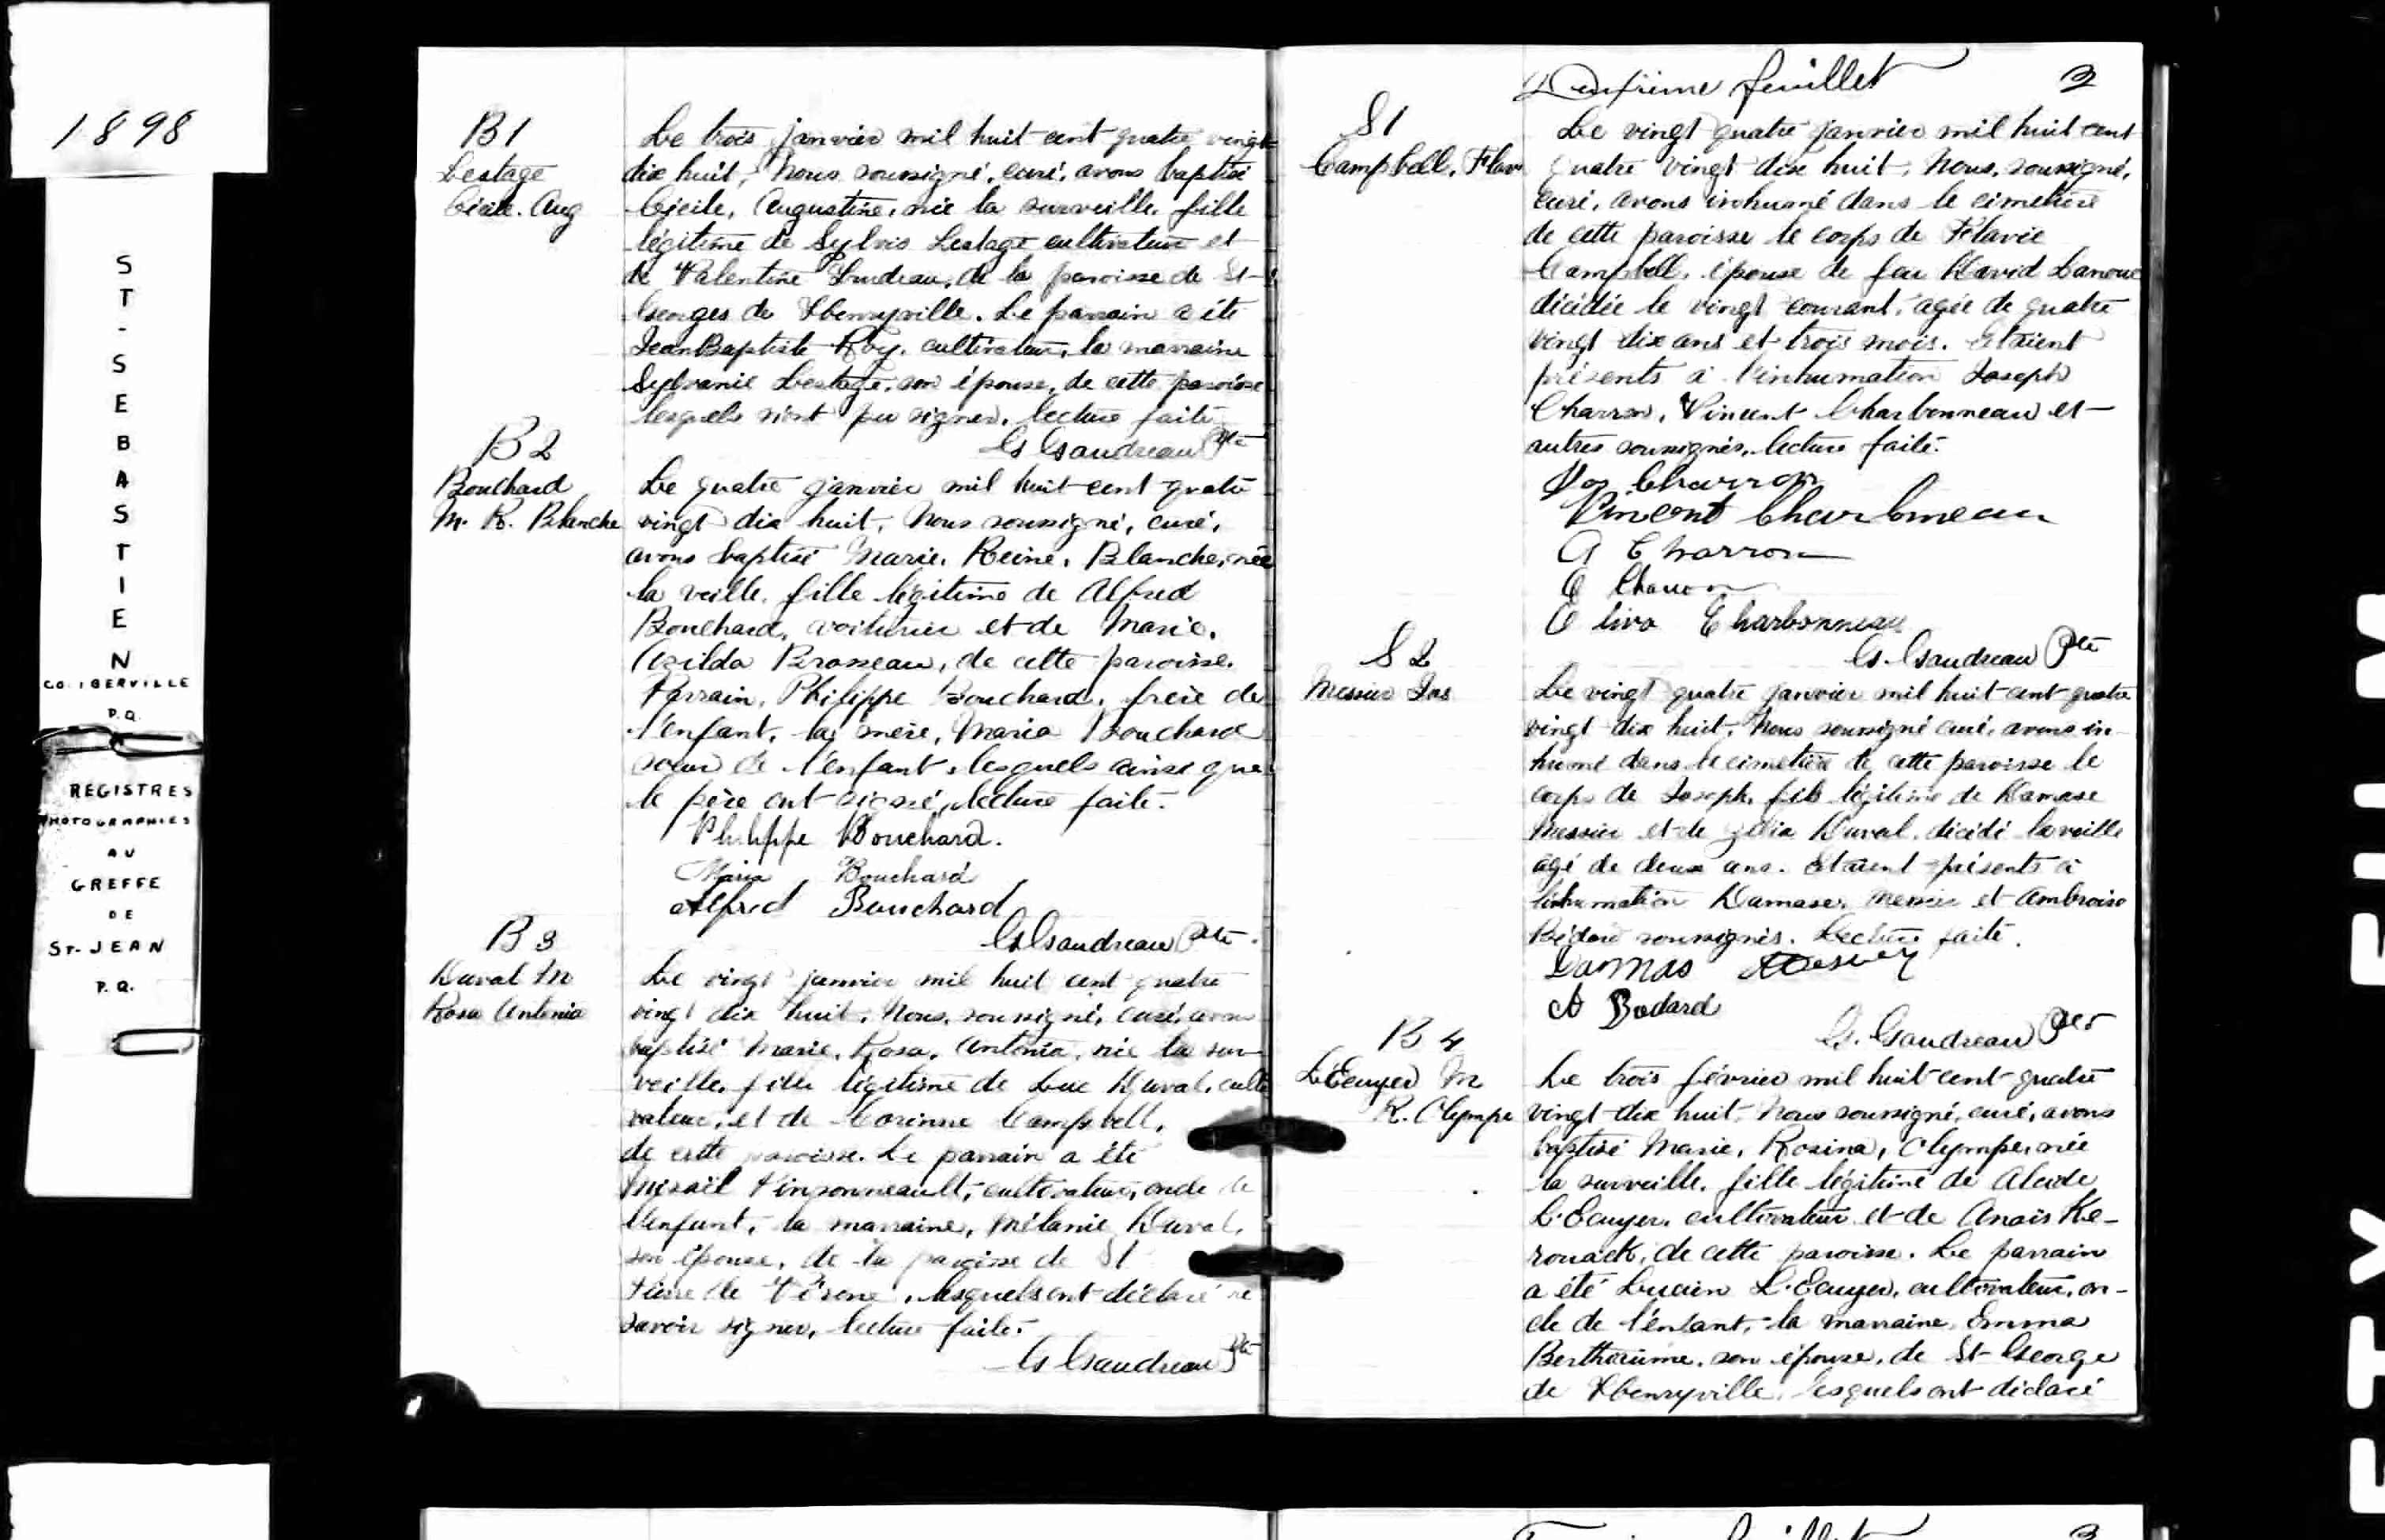 1898
ST-SEBASTIEN
CO. IBERVILLE
P.Q.
REGISTRES
PHOTOGRAPHIES
AU
GREFFE
DE
ST-JEAN
P.Q.
B1
Lestage
Cécile. Aug
Le trois janvier mil huit cent quatre vingt
dix huit, Nous soussigné, curé, avons baptisé
Cécile, Augustine, née la surveille, fille
légitime de Sylvis Lestage cultivateur et
de Valentine Trudeau, de la paroisse de St-
Georges de Henryville. Le parrain a été
Jean Baptiste Roy, cultivateur, la marraine
Sylvanie Lestage, son épouse, de cette paroisse
lesquels n'ont pu signer, lecture faite
Gaudreau Ptre
B2
Bouchard
M. R. Blanche
Le quatre janvier mil huit cent quatre
vingt dix huit, Nous soussigné, curé,
avons baptisé Marie, Reine, Blanche, née
la veille, fille légitime de Alfred
Bouchard, voiturier et de Marie,
Azilda Brosseau, de cette paroisse.
Parrain, Philippe Bouchard, frère de
l'enfant, la mère, Maria Bouchard
soeur de l'enfant, lesquels ainsi que
le père ont signé, lecture faite.
Philippe Bouchard.
Maria Bouchard
Alfred Bouchard
Gaudreau Ptre.
B3
Duval M
Rosa Antonia
Le vingt janvier mil huit cent quatre
vingt dix huit, Nous, soussigné, curé, avons
baptisé Marie, Rosa, Antonia, née la sur-
veille, fille légitime de Luc Duval, culti
vateur, et de Corinne Campbell,
de cette paroisse. Le parrain a été
Misaël Pinsonneault, cultivateur, oncle de
l'enfant, la marraine, Mélanie Duval,
son épouse, de la paroisse de St
Pierre de Vérone, lesquels ont déclaré ne
savoir signer, lecture faite.
Gaudreau Ptre
Deuxième feuillet 2
S1
Campbell, Flav
Le vingt quatre janvier mil huit cent
quatre vingt dix huit, Nous, soussigné,
curé, avons inhumé dans le cimetière
de cette paroisse le corps de Flavie
Campbell, épouse de feu David Lanoue
décédée le vingt courant, agée de quatre
vingt dix ans et trois mois. Etaient
présents à l'inhumation Joseph
Charron, Vincent Charbonneau et
autres soussignés, lecture faite.
Jos Charron
Vincent Charbonneau
A Charron
Charron
Oliva Charbonneau
G. Gaudreau Ptre
S2
Messier Jos
Le vingt quatre janvier mil huit cent quatre
vingt dix huit, Nous soussigné curé, avons in
humé dans le cimetière de cette paroisse le
corps de Joseph, fils légitime de Damase
Messier et de Duval, décédé la veille
agé de deux ans. Etaient présents à
l'inhumation Damase, Messier et Ambroise
Bédard soussignés. Lecture faite.
Damas
A Bedard
G. Gaudreau Ptre
B4
L'Ecuyer M
R. Olympe
Le trois février mil huit cent quatre
vingt dix huit, Nous soussigné, curé, avons
baptisé Marie, Rosina, Olympe, née
la surveille, fille légitime de Alcide
L'Ecuyer, cultivateur et de Anaïs Ke-
rouack, de cette paroisse. Le parrain
a été Lucien L'Ecuyer, cultivateur, on-
cle de l'enfant, la marraine Emma
Berthiaume, son épouse, de St-George
de Henryville, lesquels ont déclaré
3